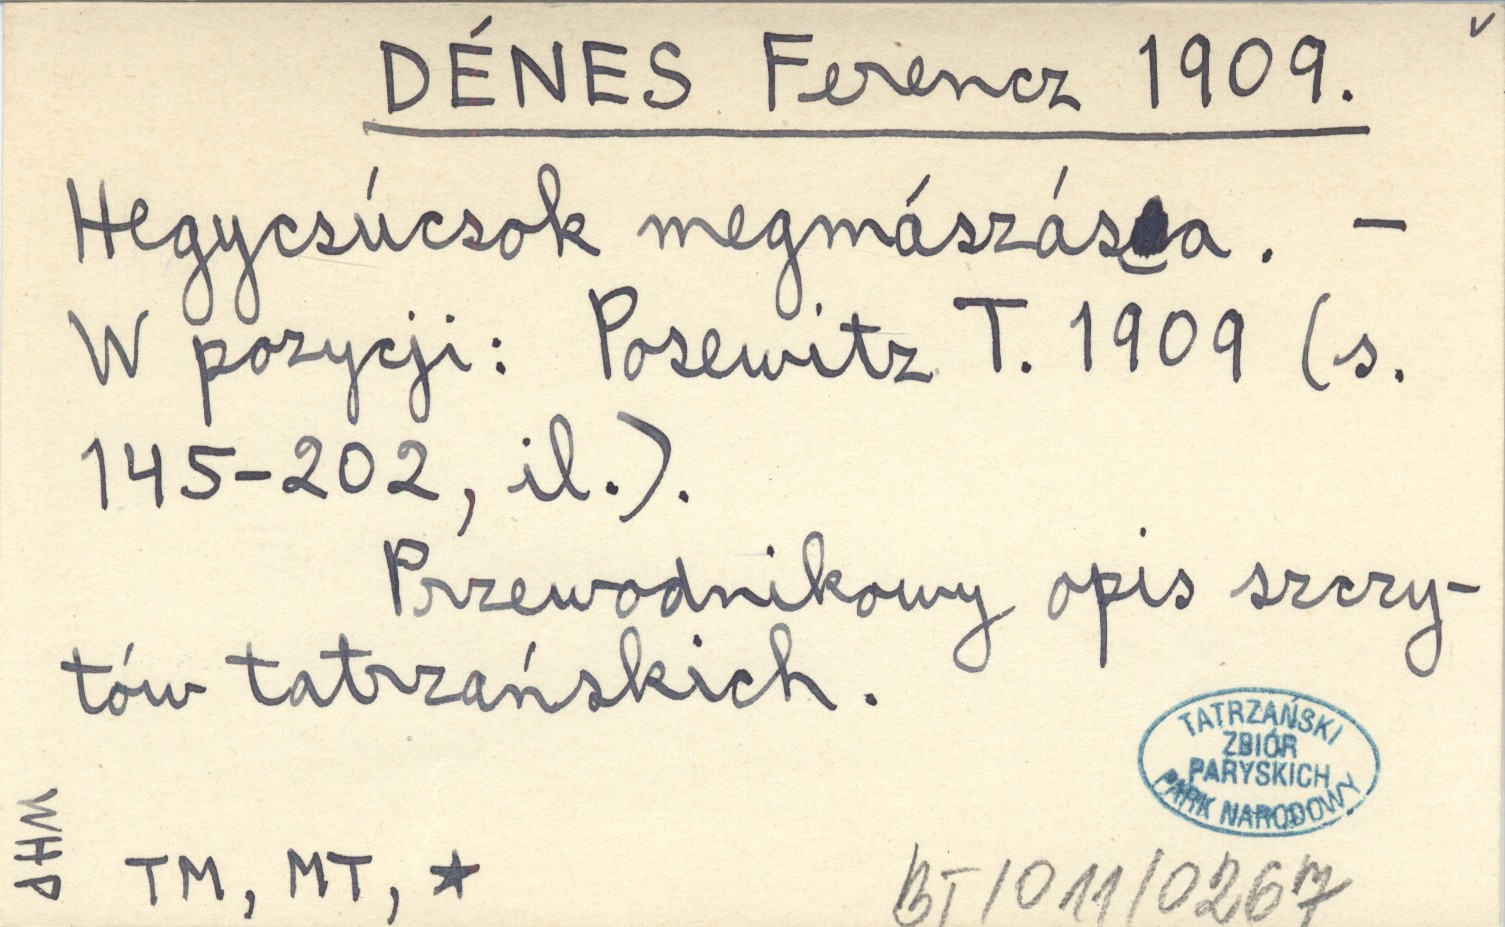 DÉNES Ferencz 1909.
Hegycsúcsok megmászása. –
W pozycji: Posewitz T. 1909 (s.
145-202, il.).
Przewodnikowy opis szczy-
tów tatrzańskich.
TATRZAŃSKI
ZBIÓR
PARYSKICH
PARK NARODOWY
WHP
TM, MT, ★
BT/011/0267